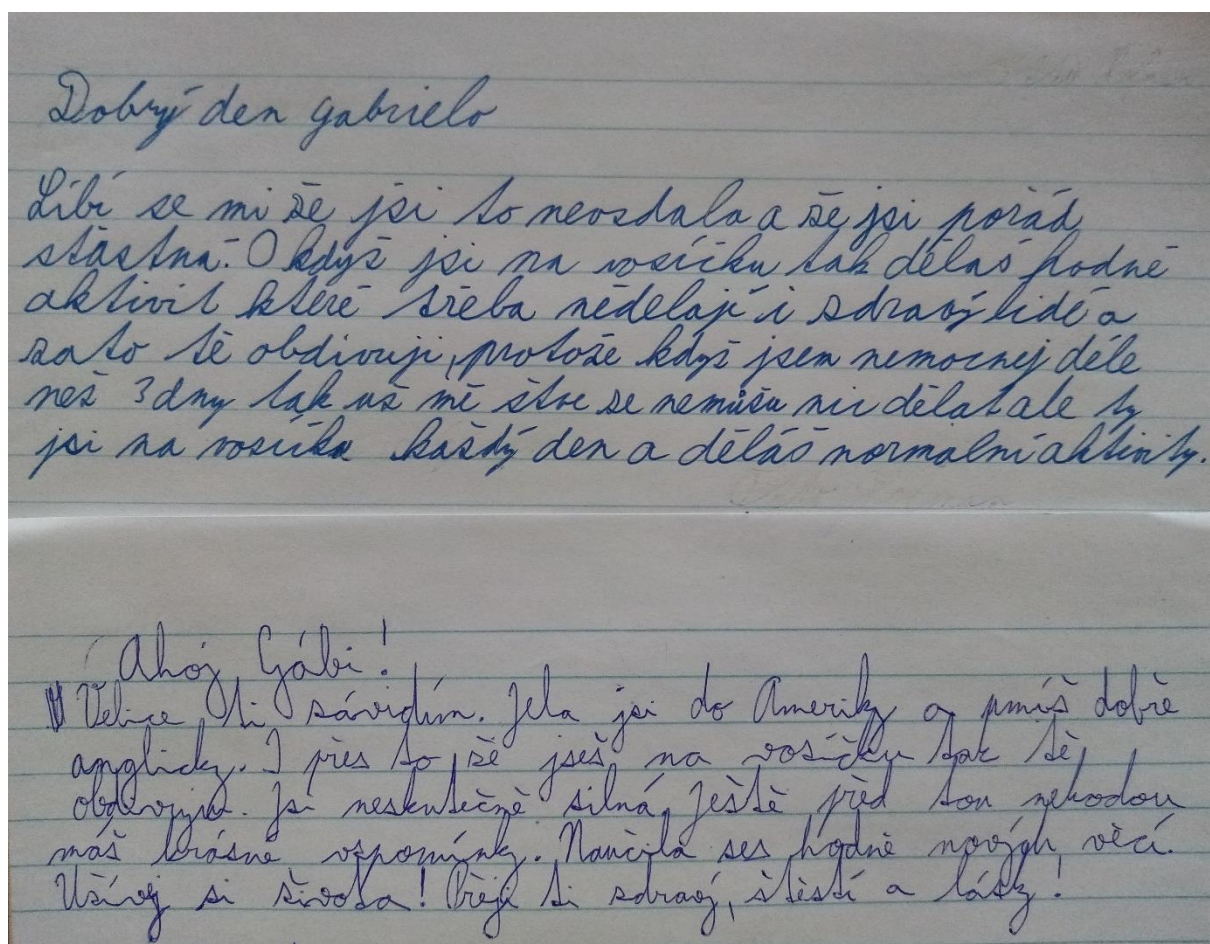 Dobrý den gabrielo
Líbí se mi že jsi to nevzdala a že jsi pořád
stástná. I když jsi na vozíčku tak děláš hodně
aktivit které třeba nědelají i zdravý lidé a
za to tě obdivuji, protože když jsem nemocnej déle
než 3 dny tak už mě štve že nemůžu nic dělat ale ty
jsi na vozíku každý den a děláš normalní aktivity.
Ahoj Gábi!
Velice ti závidím. Jela jsi do Ameriky a umíš dobře
anglicky. I přes to, že jseš na vozíčku tak tě
obdivuju. Jsi neskutečně silná. Ještě před tou nehodou
máš krásné vzpomínky. Naučila ses hodně nových věcí.
Užívej si života! Přeji ti zdraví, štěstí a lásky!